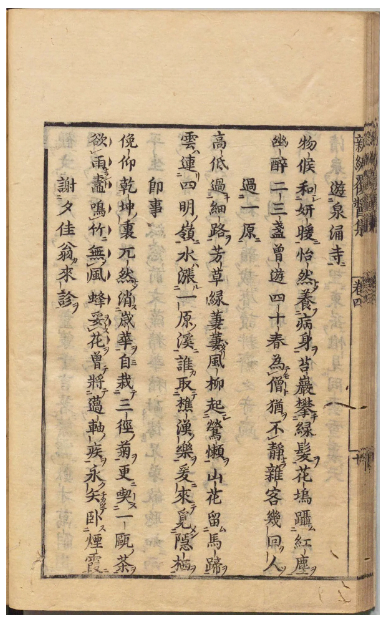 遊泉涌寺
物候和妍暖怡然養病身苔巖攀綠髮花塢躡紅塵
幽醉二三盞曾遊四十春為僧猶不靜雜客幾回人
過一原
高低過細路芳草綠萋萋風柳起鶯懶山花留馬蹄
雲連四明嶺水漲一原溪誰取樵漁樂爰來覓隱栖
即事
俛仰乾坤裏兀然消歲華自栽三徑菊更喫一甌茶
欲雨蠹鳴竹無風蜂妥花曾將薖軸疾永矢臥煙霞
謝夕佳翁來診
卷四